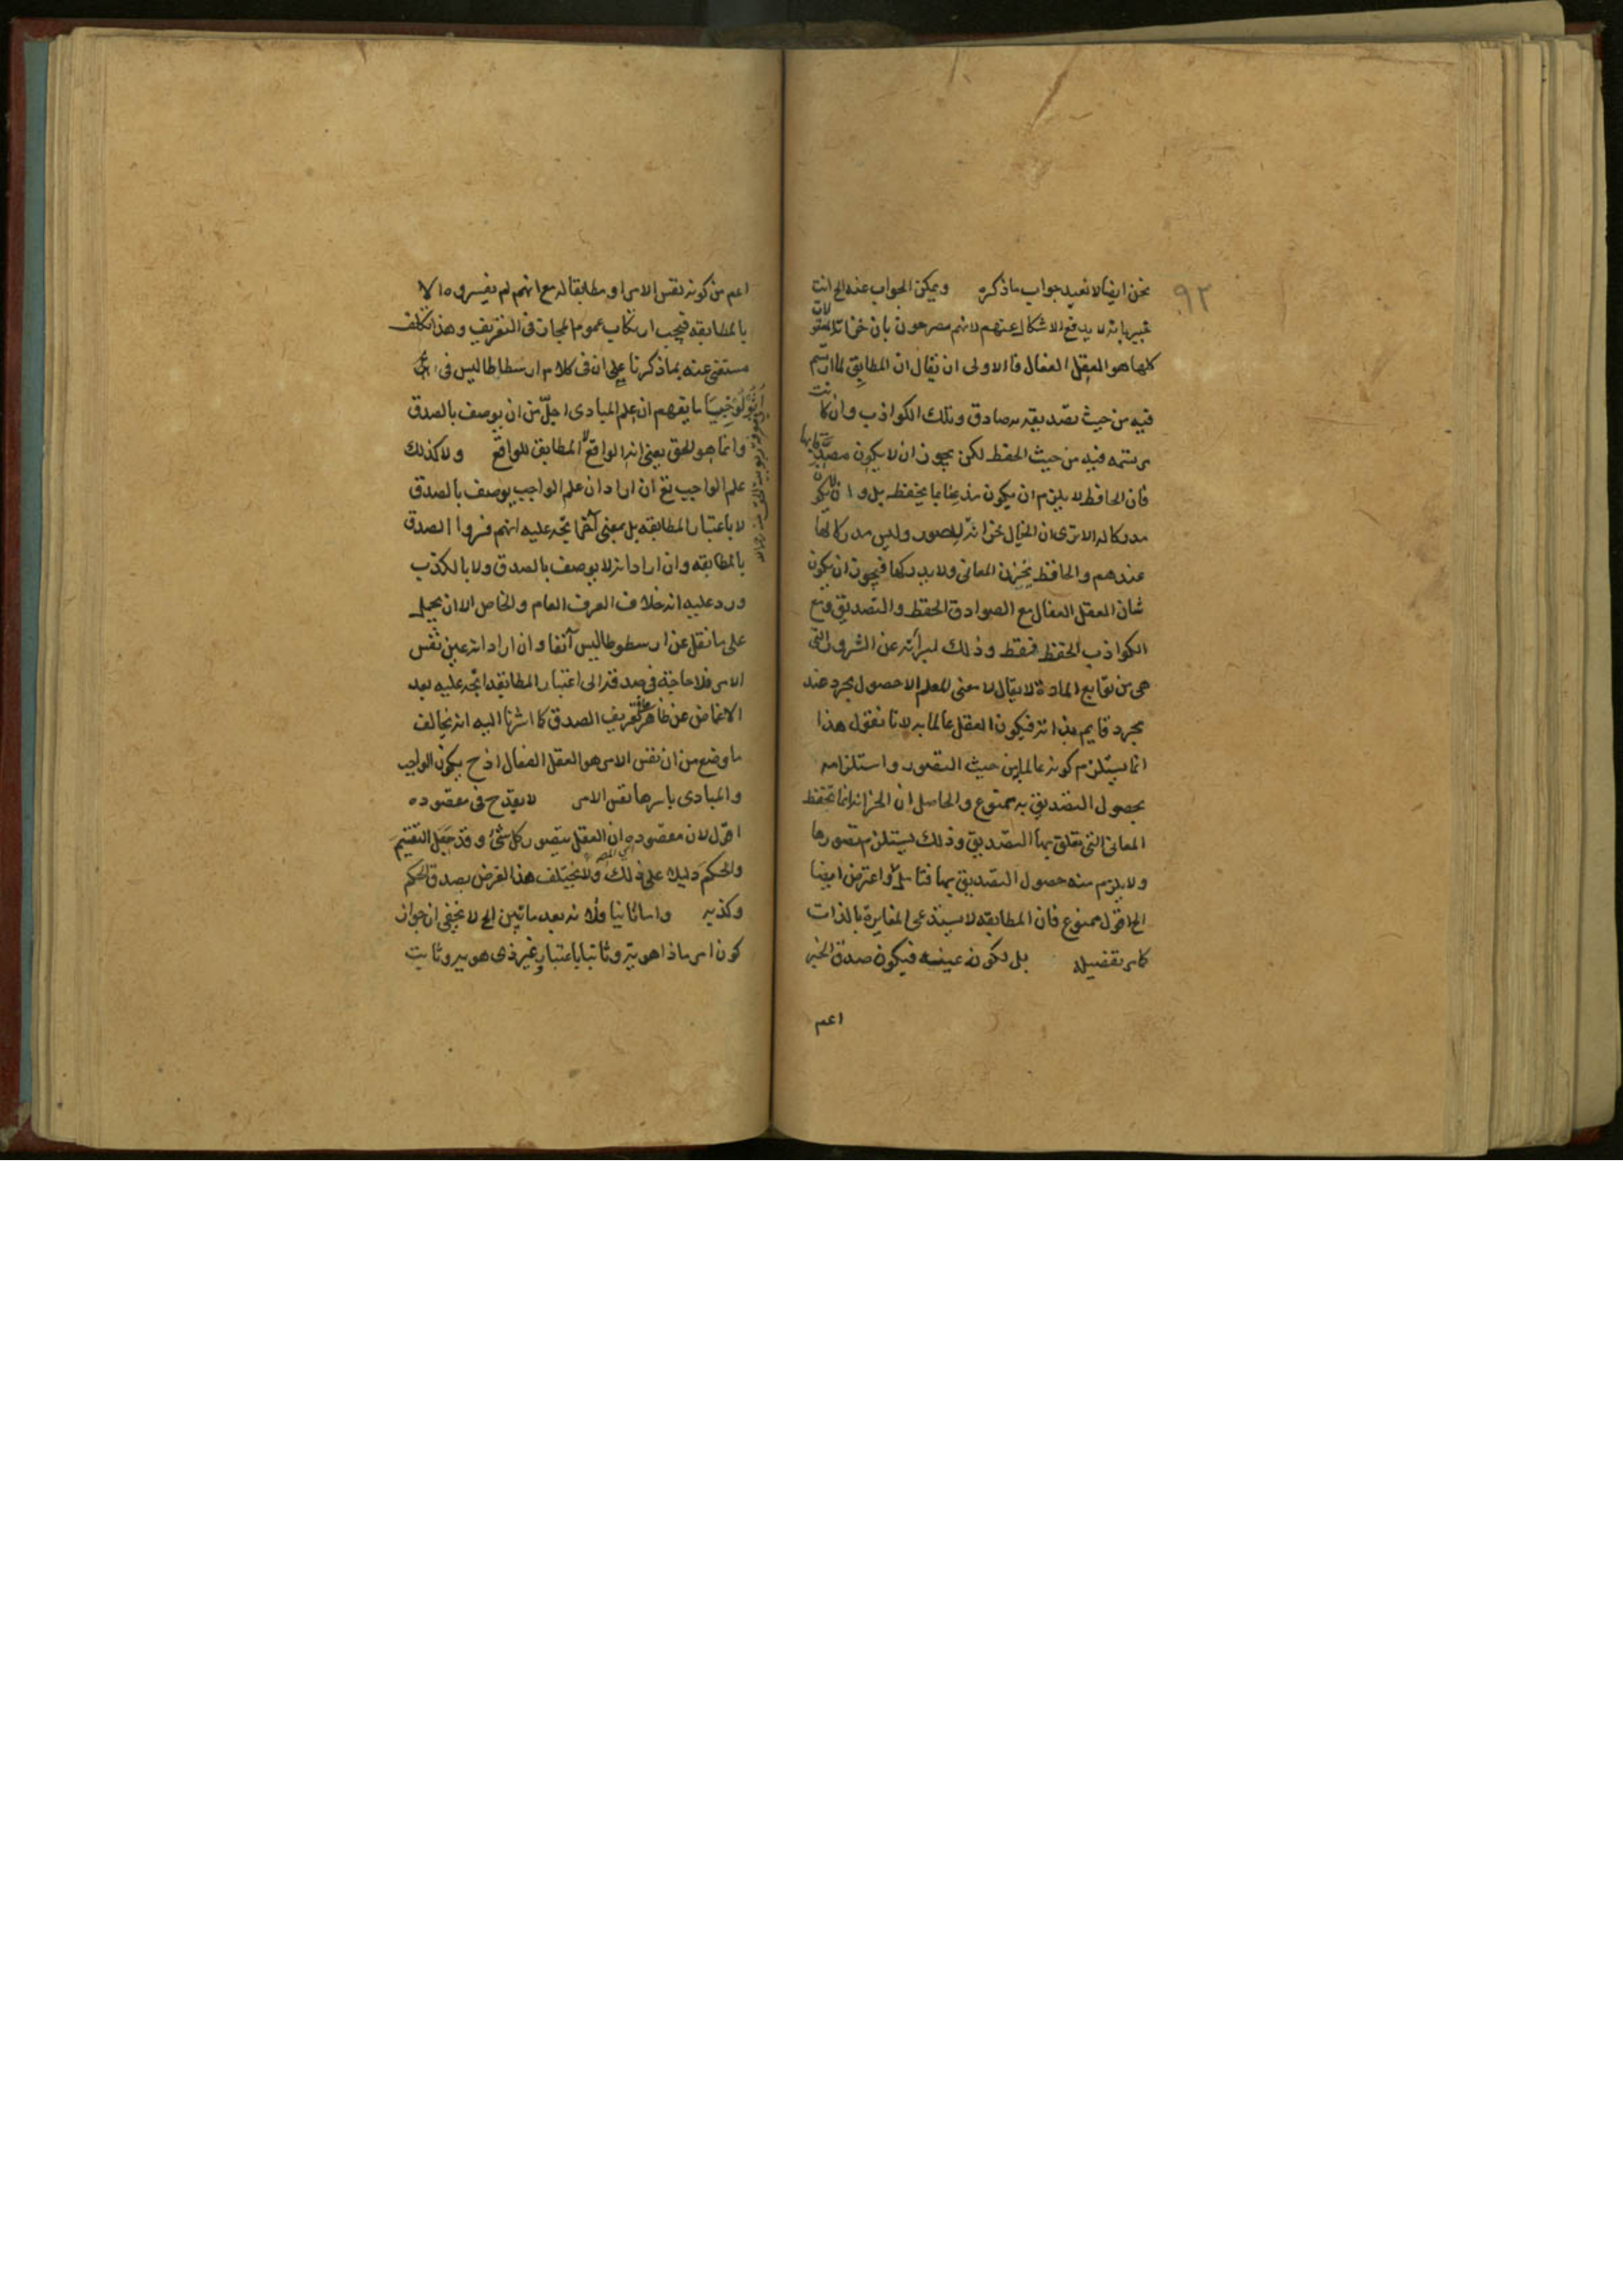 ٩٢
نحن ايضا لا نعيد جواب ما ذكره ويمكن الجواب عنه الخ انت
خبير بانه لا يدفع الاشكال عنهم لانهم مصرحون بان خزانة المعقولات
كلها هو العقل الفعال فالاولى ان يقال ان المطابق لما ارتسم
فيه من حيث تصديقه به صادق وتلك الكواذب وان كانت
مرتسمه فيه من حيث الحفظ لكن يجوز ان لا يكون مصدقا بها
فان الحافظ لا يلزم ان يكون مذعنا بما يحفظه بل وان لا يكون
مدركا له الا ترى ان الخيال خزانة للصور وليس مدركا لها
عندهم والحافظ يخزن المعانى ولا يدركها فيجوز ان يكون
شان العقل الفعال مع الصوادق الحفظ والتصديق ومع
الكواذب الحفظ فقط وذلك لبراته عن الشرور التى
هى من توابع المادة لا يقال لا معنى للعلم الا حصول مجرد عند
مجرد قايم بذاته فيكون العقل عالما به لانا نقول هذا
انما يستلزم كونه عالما من حيث التصور واستلزامه
بحصول التصديق به ممنوع والحاصل ان الخزانة انما تحفظ
المعانى التى يتعلق بها التصديق وذلك يستلزم تصورها
ولا يلزم منه حصول التصديق بها فتامل واعترض ايضا
الخ اقول ممنوع فان المطابقه لا يستدعى المغايرة بالذات
كما مر تفضيله بل لكونه عينه فيكون صدق الخبر
اعم
اعم من كونه نفس الامر او مطابقا له مع انهم لم يفسروه الا
بالمطابقه فيجب ارتكاب عموم المجاز فى التعريف وهذا تكلف
مستغنى عنه بما ذكرنا على ان فى كلام ارسطاطاليس فى
اثولوجيا ما يفهم ان علم المبادى اجل من ان يوصف بالصدق
وانما هو للحق بمعنى انه الواقع لا المطابق للواقع ولا كذلك
علم الواجب تع ان اراد ان علم الواجب يوصف بالصدق
لا باعتبار المطابقه بل بمعنى آخر اتجه عليه انهم فسروا الصدق
بالمطابقه وان اراد انه لا يوصف بالصدق ولا بالكذب
ورد عليه انه خلاف العرف العام والخاص الا ان يحمل
على ما نقل عن ارسطوطاليس آنفا وان اراد انه عين نفس
الامر فلا حاجة فى صدقه الى اعتبار المطابقه اتجه عليه بعد
الاغماض عن ظاهر تعريف الصدق كما اشرنا اليه انه يخالف
ما وضع من ان نفس الامر هو العقل الفعال اذ ح يكون الواجب
والمبادى باسرها نفس الامر لا يقدح فى مقصوده
اقول لان مقصوده ان العقل يتصور كل شئ وقد جعل التقسيم
والحكم دليلا على ذلك ولا يختلف هذا الغرض بصدق الحكم
وكذبه واما ثانيا فلانه بعد ما تبين الخ لا يخفى ان جواز
كون امر ما ذا هوية وثابتا باعتبار وغير ذى هوية وثابت